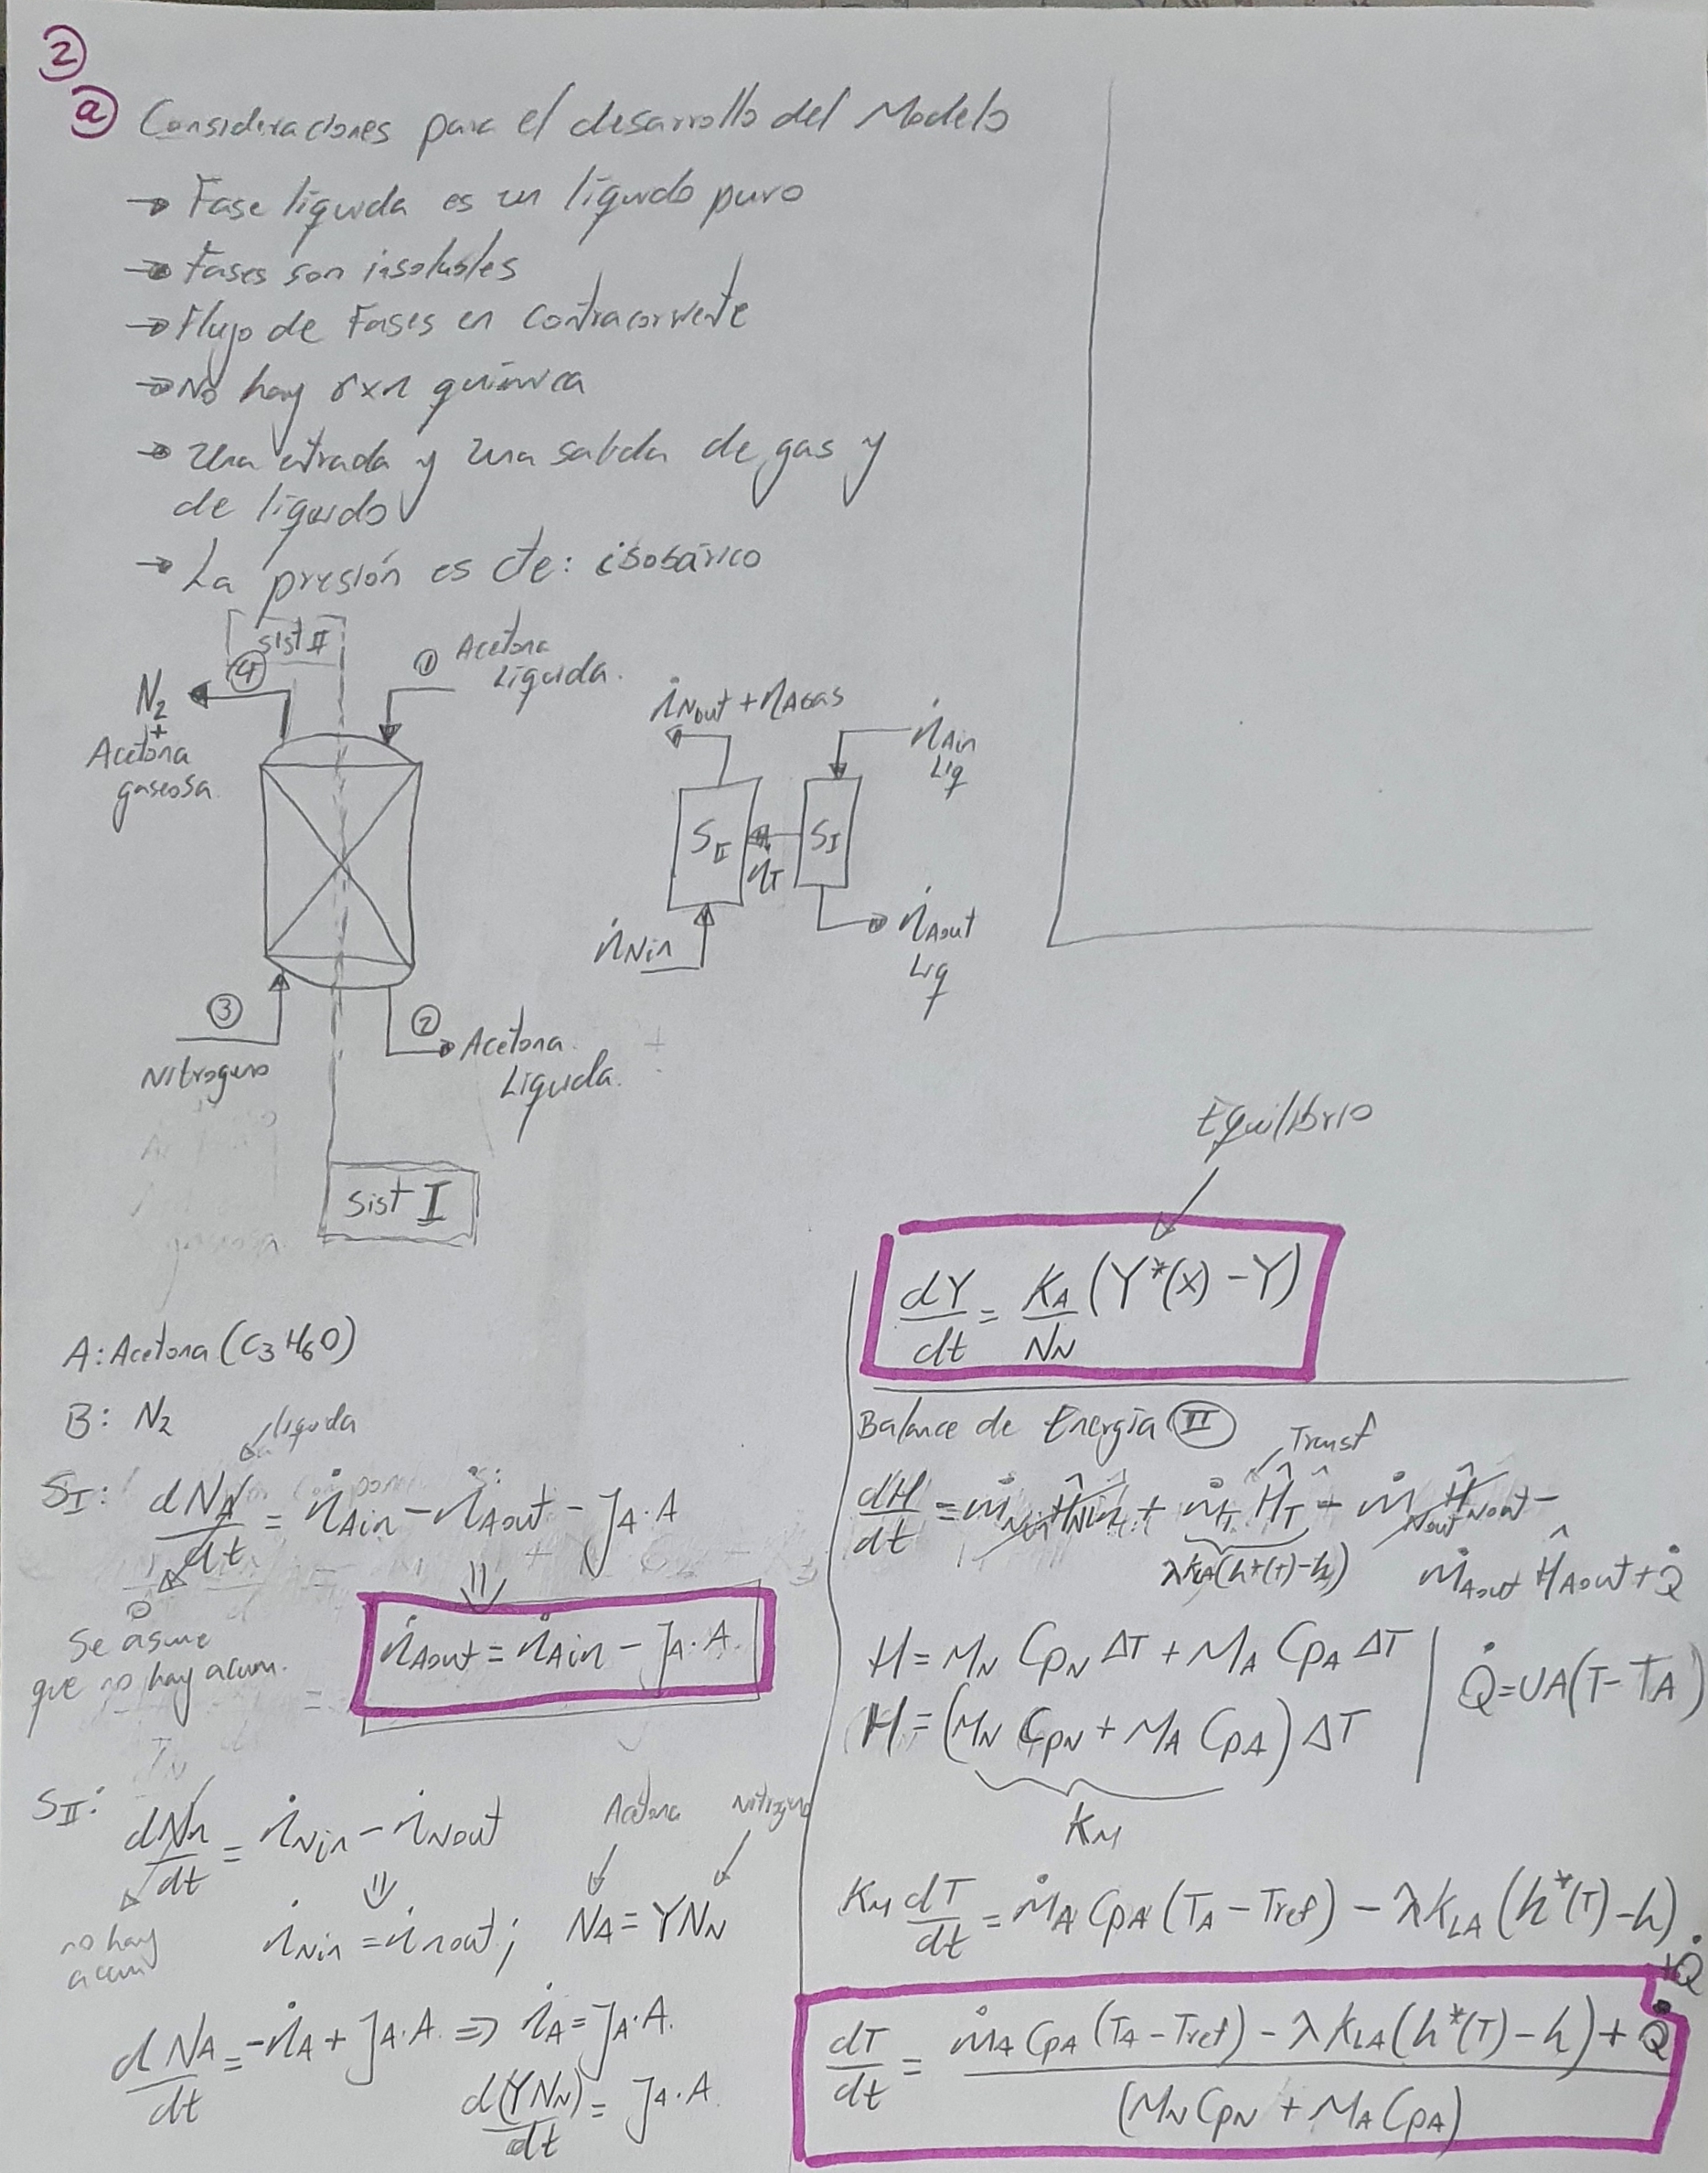 2
a Consideraciones para el desarrollo del Modelo
→ Fase líquida es un líquido puro
→ Fases son insolubles
→ Flujo de Fases en contracorriente
→ No hay rxn química
→ Una entrada y una salida de gas y
de líquido
→ La presión es cte: isobárico
Sist II
④
N₂
+
Acetona
gaseosa
① Acetona
Líquida.
③
Nitrogeno
② Acetona
Líquida.
Sist I
ṅNout + ṅAgas
ṅAin
Liq
SII
SI
ṅT
ṅNin
ṅAout
Liq
A: Acetona (C₃H₆O)
B: N₂
líquida
SI: dNA/dt = ṅAin - ṅAout - JA·A
0
Se asume
que no hay acum.
⇓
ṅAout = ṅAin - JA·A.
SII: dNn/dt = ṅNin - ṅNout
no hay
acum
⇓
ṅNin = ṅnout;
Acetona
Nitrogeno
NA = YNN
dNA/dt = -ṅA + JA·A. ⇒ ṅA = JA·A.
d(YNN)/dt = JA·A
Equilibrio
dY/dt = KA/NN (Y*(x) - Y)
Balance de Energía II
Transf
dH/dt = ṁNin ĤNin + ṁT ĤT - ṁNout ĤNout -
λKLA(h*(T)-h)
ṁAout ĤAout + Q̇
H = MN CPN ΔT + MA CPA ΔT
H = (MN CPN + MA CPA) ΔT
KM
Q̇ = UA(T - TA)
KM dT/dt = ṁA CPA (TA - Tref) - λKLA (h*(T) - h)
+Q̇
dT/dt = ṁA CPA (TA - Tref) - λKLA (h*(T) - h) + Q̇ / (MN CPN + MA CPA)